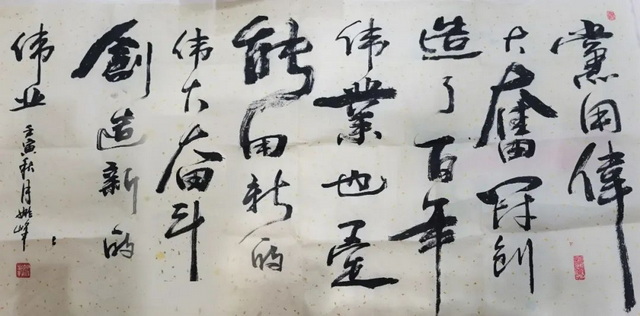 黨用偉
大奮鬥創
造了百年
伟業也一定
能用新的
伟大奋斗
創造新的
伟业
壬寅秋月姚峰